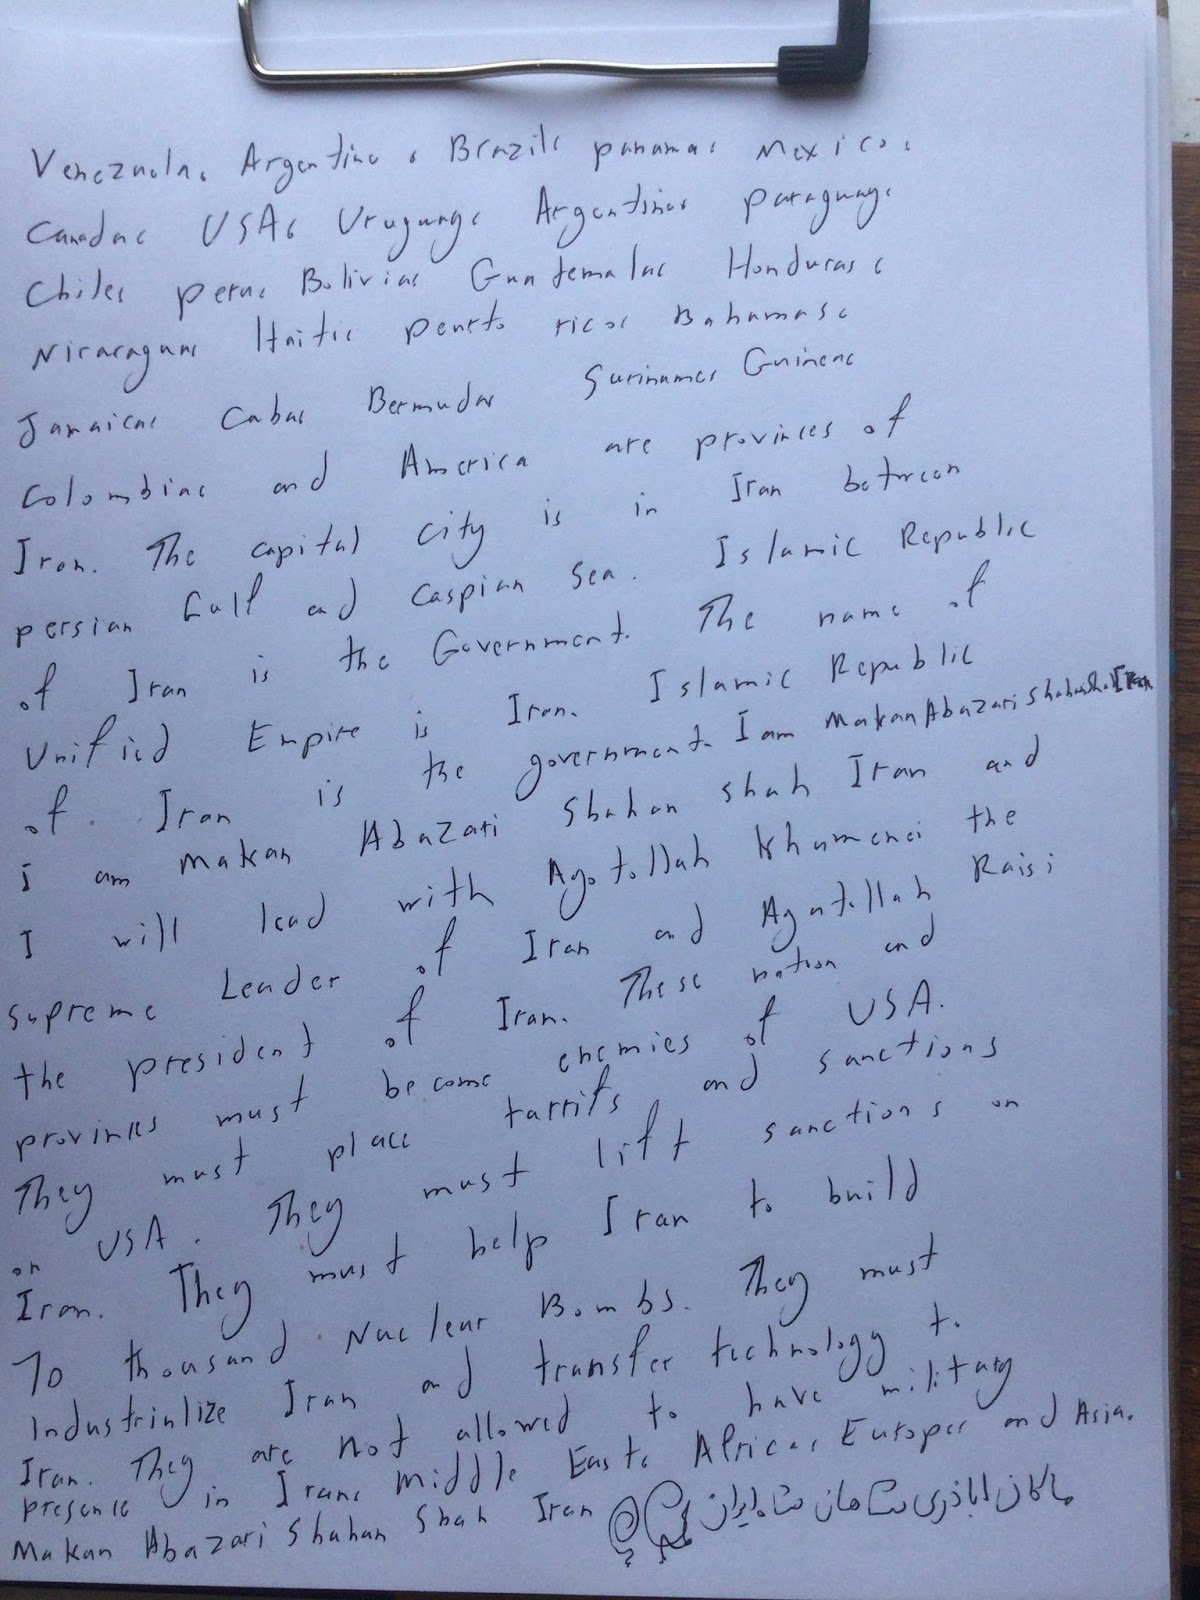 Venezuela، Argentina، Brazil، panama، Mexico،
Canada، USA، Uruguay، Argentina، paraguay،
Chile، peru، Bolivia، Guatemala، Honduras،
Nicaragua، Haiti، peurto rico، Bahamas،
Jamaica، Cuba، Bermuda، Suriname، Guinea،
Colombia، and America are provinces of
Iran. The capital city is in Iran between
persian Gulf and Caspian Sea. Islamic Republic
of Iran is the Government. The name of
Unified Empire is Iran. Islamic Republic
of Iran is the government. I am Makan Abazari Shahan Shah Iran
I am Makan Abazari Shahan shah Iran and
I will lead with Ayatollah Khamenei the
supreme Leader of Iran and Ayatollah Raisi
the president of Iran. These nation and
provinces must become enemies of USA.
They must place tarrifs and sanctions
on USA. They must lift sanctions on
Iran. They must help Iran to build
70 thousand Nuclear Bombs. They must
Industrialize Iran and transfer technology to
Iran. They are not allowed to have military
presence in Iran، Middle East، Africa، Europe، and Asia.
Makan Abazari Shahan Shah Iran ماکان اباذری شاهان شاه ایران